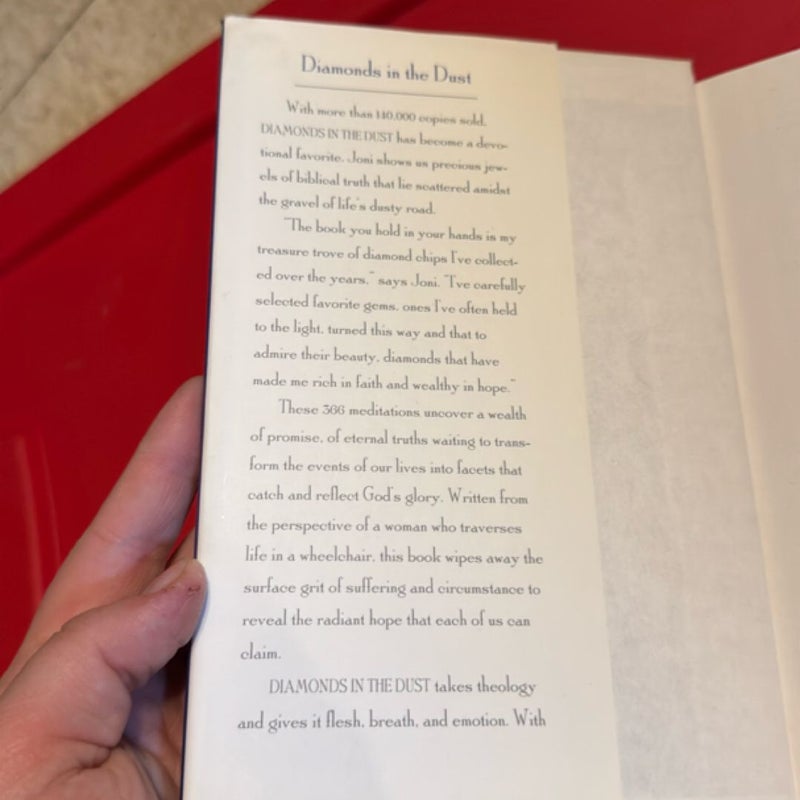 Diamonds in the Dust
With more than 140,000 copies sold,
DIAMONDS IN THE DUST has become a devo-
tional favorite. Joni shows us precious jew-
els of biblical truth that lie scattered amidst
the gravel of life's dusty road.
"The book you hold in your hands is my
treasure trove of diamond chips I've collect-
ed over the years," says Joni. "I've carefully
selected favorite gems, ones I've often held
to the light, turned this way and that to
admire their beauty, diamonds that have
made me rich in faith and wealthy in hope."
These 366 meditations uncover a wealth
of promise, of eternal truths waiting to trans-
form the events of our lives into facets that
catch and reflect God's glory. Written from
the perspective of a woman who traverses
life in a wheelchair, this book wipes away the
surface grit of suffering and circumstance to
reveal the radiant hope that each of us can
claim.
DIAMONDS IN THE DUST takes theology
and gives it flesh, breath, and emotion. With